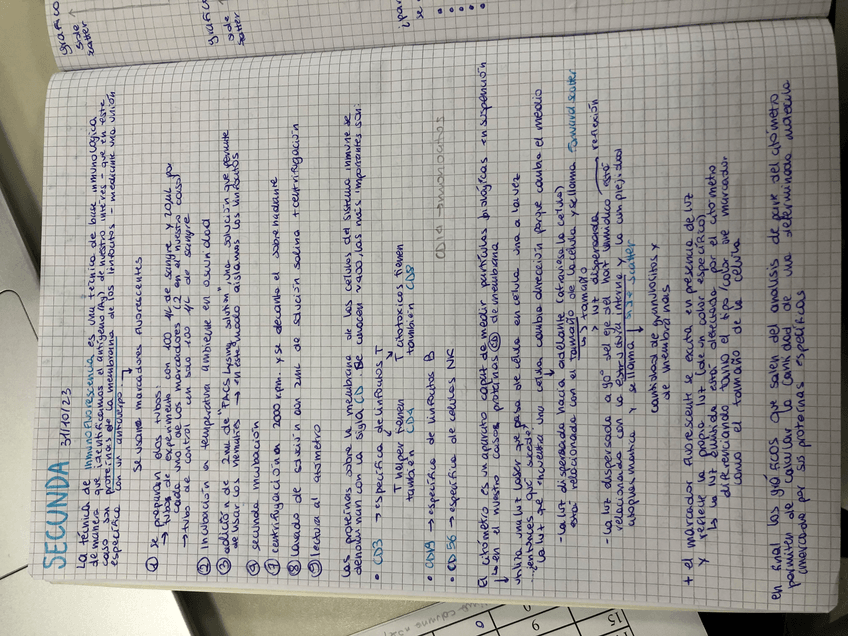 SECUNDA 31/10/23
La técnica de inmunofluorescencia es una técnica de base inmunológica
de manera que identificamos el antígeno (Ag) de nuestro interés - que en este
caso son proteínas de la membrana de los linfocitos - mediante una unión
específica con un anticuerpo.
se usan marcadores fluorescentes
① se preparan dos tubos:
→ tubos de experimento con 100 µL de sangre y 20µL por
cada uno de los marcadores (2 en el nuestro caso)
→ tubo de control con solo 100 µL de sangre
② incubación a temperatura ambiente en oscuridad
③ adición de 2mL de "FACS Lysing solution" una solución que permite
de lisar los hematíes → en este modo aislamos los linfocitos
④ segunda incubación
⑦ centrifugación a 2000 rpm, y se decanta el sobrenadante
⑧ lavado de solución con 2mL de solución salina + centrifugación
⑨ lectura al citómetro
Las proteínas sobre la membrana de las células del sistema inmune se
denominan con la sigla CD. Se conocen >400, las más importantes son:
• CD3 → específica de linfocitos T
T helper tienen
también CD4
T citotóxicos tienen
también CD8
• CD19 → específica de linfocitos B
• CD56 → específica de células NK
CD14 → monocitos
El citómetro es un aparato capaz de medir partículas biológicas en suspensión
↳ en el nuestro caso, proteínas CD de membrana
utiliza una luz laser que pasa de célula en célula una a la vez
¿entonces que sucede?
"la luz que encuentra una célula cambia dirección porque cambia el medio
- La luz dispersada hacia adelante (atraviesa la célula)
está relacionada con el tamaño de la célula y se llama Forward scatter
↳ tamaño
> luz dispersada → reflexión
- La luz dispersada a 90° del eje del haz lumídico está
relacionada con la estructura interna y la complejidad
citoplasmática y se llama side scatter
cantidad de gránulocitos y
de membranas
+ el marcador fluorescente se excita en presencia de luz
y refleje la propia luz (de un color específico)
↳ la luz emitida está detectada por el citómetro
diferenciando tanto el tipo/color de marcador
como el tamaño de la célula
en final las gráficos que salen del análisis de parte del citómetro
permiten de calcular la cantidad de una determinada molécula
(marcada por sus proteínas específicas
gráfico
side
scatter
gráfico
side
scatter
0
9
15